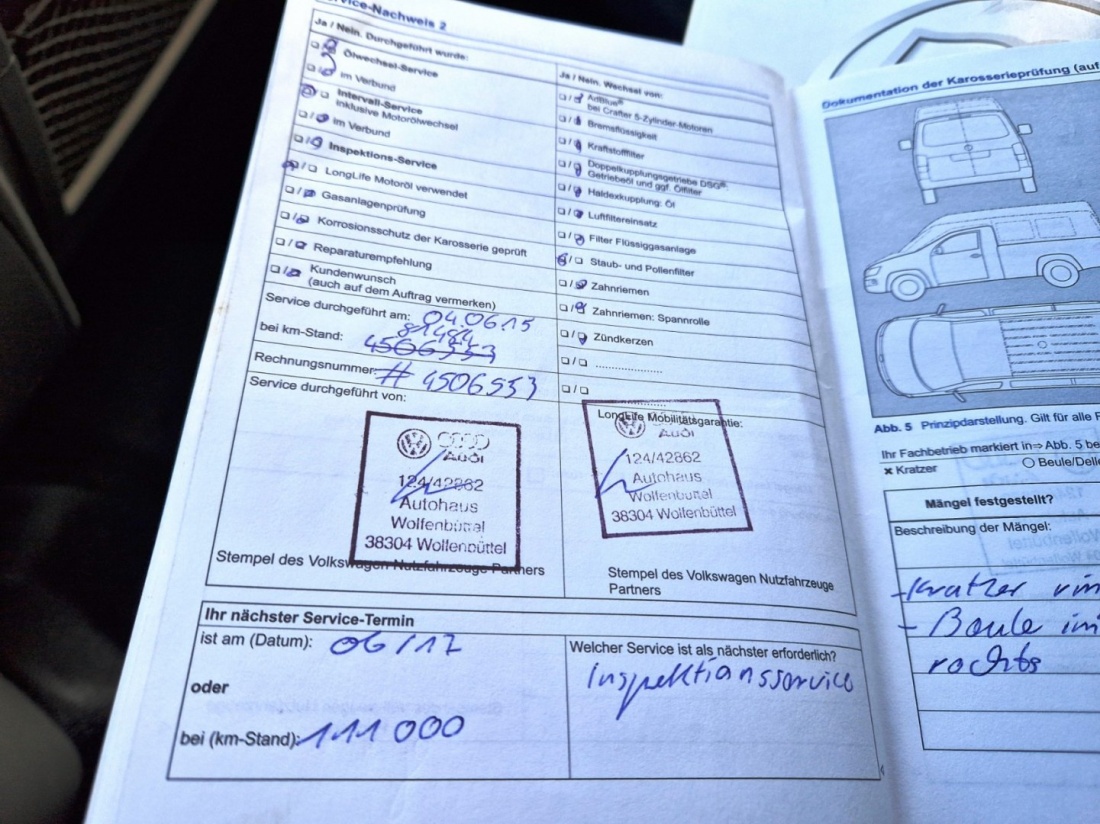 Service-Nachweis 2
Ja / Nein. Durchgeführt wurde:
Ölwechsel-Service
im Verbund
Intervall-Service
inklusive Motorölwechsel
im Verbund
Inspektions-Service
LongLife Motoröl verwendet
Gasanlagenprüfung
Korrosionsschutz der Karosserie geprüft
Reparaturempfehlung
Kundenwunsch
(auch auf dem Auftrag vermerken)
Service durchgeführt am: 04.06.15
81484
bei km-Stand: 4506553
Rechnungsnummer: # 4506553
Service durchgeführt von:
Audi
124/42862
Autohaus
Wolfenbüttel
38304 Wolfenbüttel
Stempel des Volkswagen Nutzfahrzeuge Partners
Ja / Nein. Wechsel von:
AdBlue®
bei Crafter 5-Zylinder-Motoren
Bremsflüssigkeit
Kraftstofffilter
Doppelkupplungsgetriebe DSG®:
Getriebeöl und ggf. Ölfilter
Haldexkupplung: Öl
Luftfiltereinsatz
Filter Flüssiggasanlage
Staub- und Pollenfilter
Zahnriemen
Zahnriemen: Spannrolle
Zündkerzen
LongLife Mobilitätsgarantie:
Audi
124/42862
Autohaus
Wolfenbüttel
38304 Wolfenbüttel
Stempel des Volkswagen Nutzfahrzeuge
Partners
Ihr nächster Service-Termin
ist am (Datum): 06/17
oder
bei (km-Stand): 111 000
Welcher Service ist als nächster erforderlich?
Inspektionsservice
Dokumentation der Karosserieprüfung (auf
Abb. 5 Prinzipdarstellung. Gilt für alle
Ihr Fachbetrieb markiert in ⇒ Abb. 5 be
× Kratzer
○ Beule/Delle
Mängel festgestellt?
Beschreibung der Mängel:
- Kratzer
- Beule im
rechts